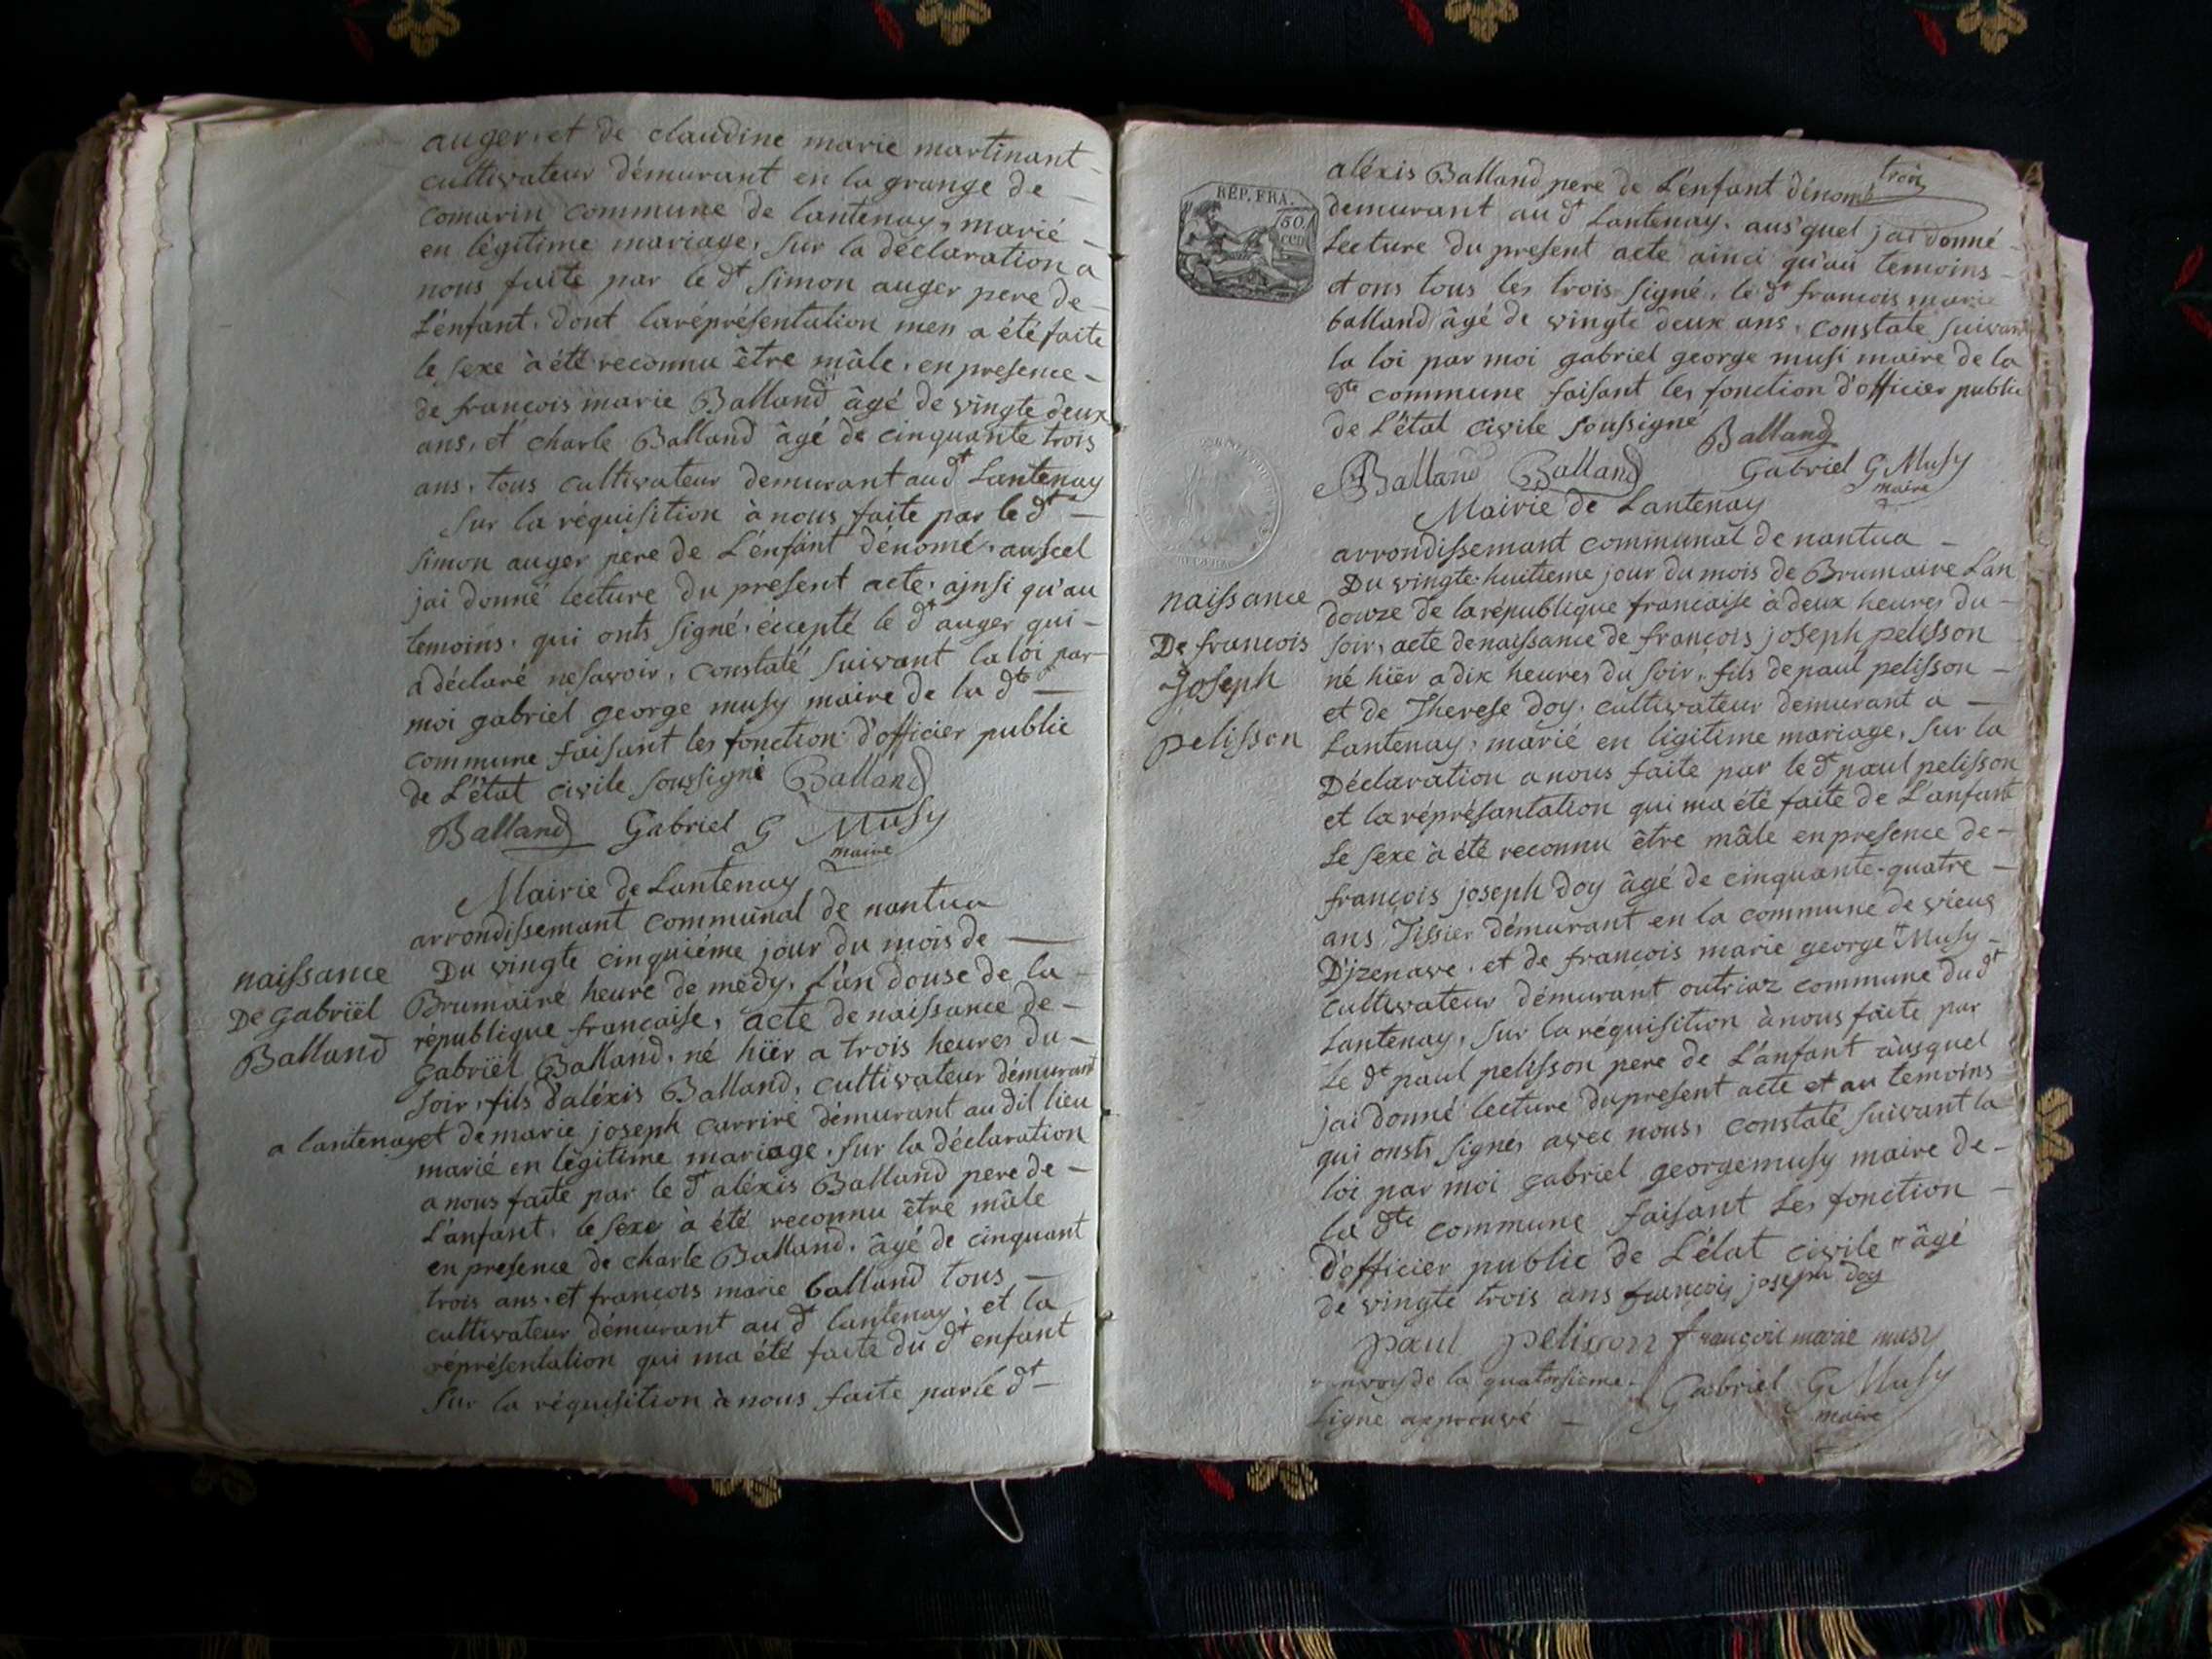 auger, et de claudine marie martinant
cultivateur démurant en la grange de
comarin commune de lantenay, marié
en légitime mariage, sur la déclaration a
nous faite par le dt simon auger pere de
L'enfant. dont la réprésentation men a été faite
le sexe à été reconnu être mâle, en presence
de francois marie Balland âgé de vingte deux
ans, et charle Balland âgé de cinquante trois
ans, tous cultivateur demurant aud.t Lantenay
sur la réquisition à nous faite par le dt
simon auger pere de L'enfant dénomé, auscel
jai donné lecture du present acte, ainsi qu'au
temoins. qui onts signé, écepté le dt auger qui
a déclaré ne savoir, constaté suivant la loi par
moi gabriel george musy maire de la dte
commune faisant les fonction d'officier public
de L'état civile soussigné Balland
Balland Gabriel G Musy
maire
Mairie de Lantenay
arrondissemant communal de nantua
naissance
De Gabriël
Balland
Du vingte cinquiéme jour du mois de
Brumaire heure de medy, L'an douse de la
république francaise, acte de naissance de
Gabriël Balland, né hïer a trois heures du
soir, fils d'aléxis Balland, cultivateur démurant
a lantenay et de marie joseph carrire démurant au dit lieu
marié en légitime mariage, sur la déclaration
a nous faite par le dt aléxis Balland pere de
L'anfant, le sexe à été reconnu être mâle
en presence de charle Balland, âgé de cinquant
trois ans, et françois marie balland tous
cultivateur démurant au dt lantenay, et la
réprésentation qui ma été faite du dt enfant
sur la réquisition à nous faite par le dt
trois
RÉP. FRA.
50.
cen
aléxis Balland pere de L'enfant dénomé
demurant au dt Lantenay, ausquel jai donné
Lecture du present acte ainci qu'au temoins
et ons tous les trois signé, le dt francois marie
balland âgé de vingte deux ans, constaté suivant
la loi par moi gabriel george musi maire de la
dte commune faisant les fonction d'officier public
de L'état civile soussigné Balland
Balland Balland Gabriel G Musy
maire
Mairie de Lantenay
arrondissemant communal de nantua
naissance
De francois
joseph
pelisson
Du vingte huitieme jour du mois de Brumaire L'an
douze de la république francaise à deux heures du
soir, acte de naissance de françois joseph pelisson
né hïer a dix heures du soir, fils de paul pelisson
et de Therese Doy, cultivateur demurant a
Lantenay, marié en ligitime mariage, sur la
Déclaration a nous faite par le dt paul pelisson
et la réprésantation qui ma été faite de L'anfant
Le sexe à été reconnu être mâle en presence de
françois joseph Doy âgé de cinquante quatre
ans Tissier démurant en la commune de vieus
D'jzenave, et de francois marie george Musy
cultivateur démurant outriaz commune du dt
Lantenay, sur la réquisition à nous faite par
Le dt paul pelisson pere de L'anfant ausquel
jai donné lecture du present acte et au temoins
qui onsts signés avec nous, constaté suivant la
loi par moi gabriel george musy maire de
la dte commune faisant Les fonction
d'officier public de L'état civile âgé
de vingte trois ans françois joseph doy
paul pelisson françois marie musy
renvoy de la quatorsieme Gabriel G Musy
Ligne approuvé maire